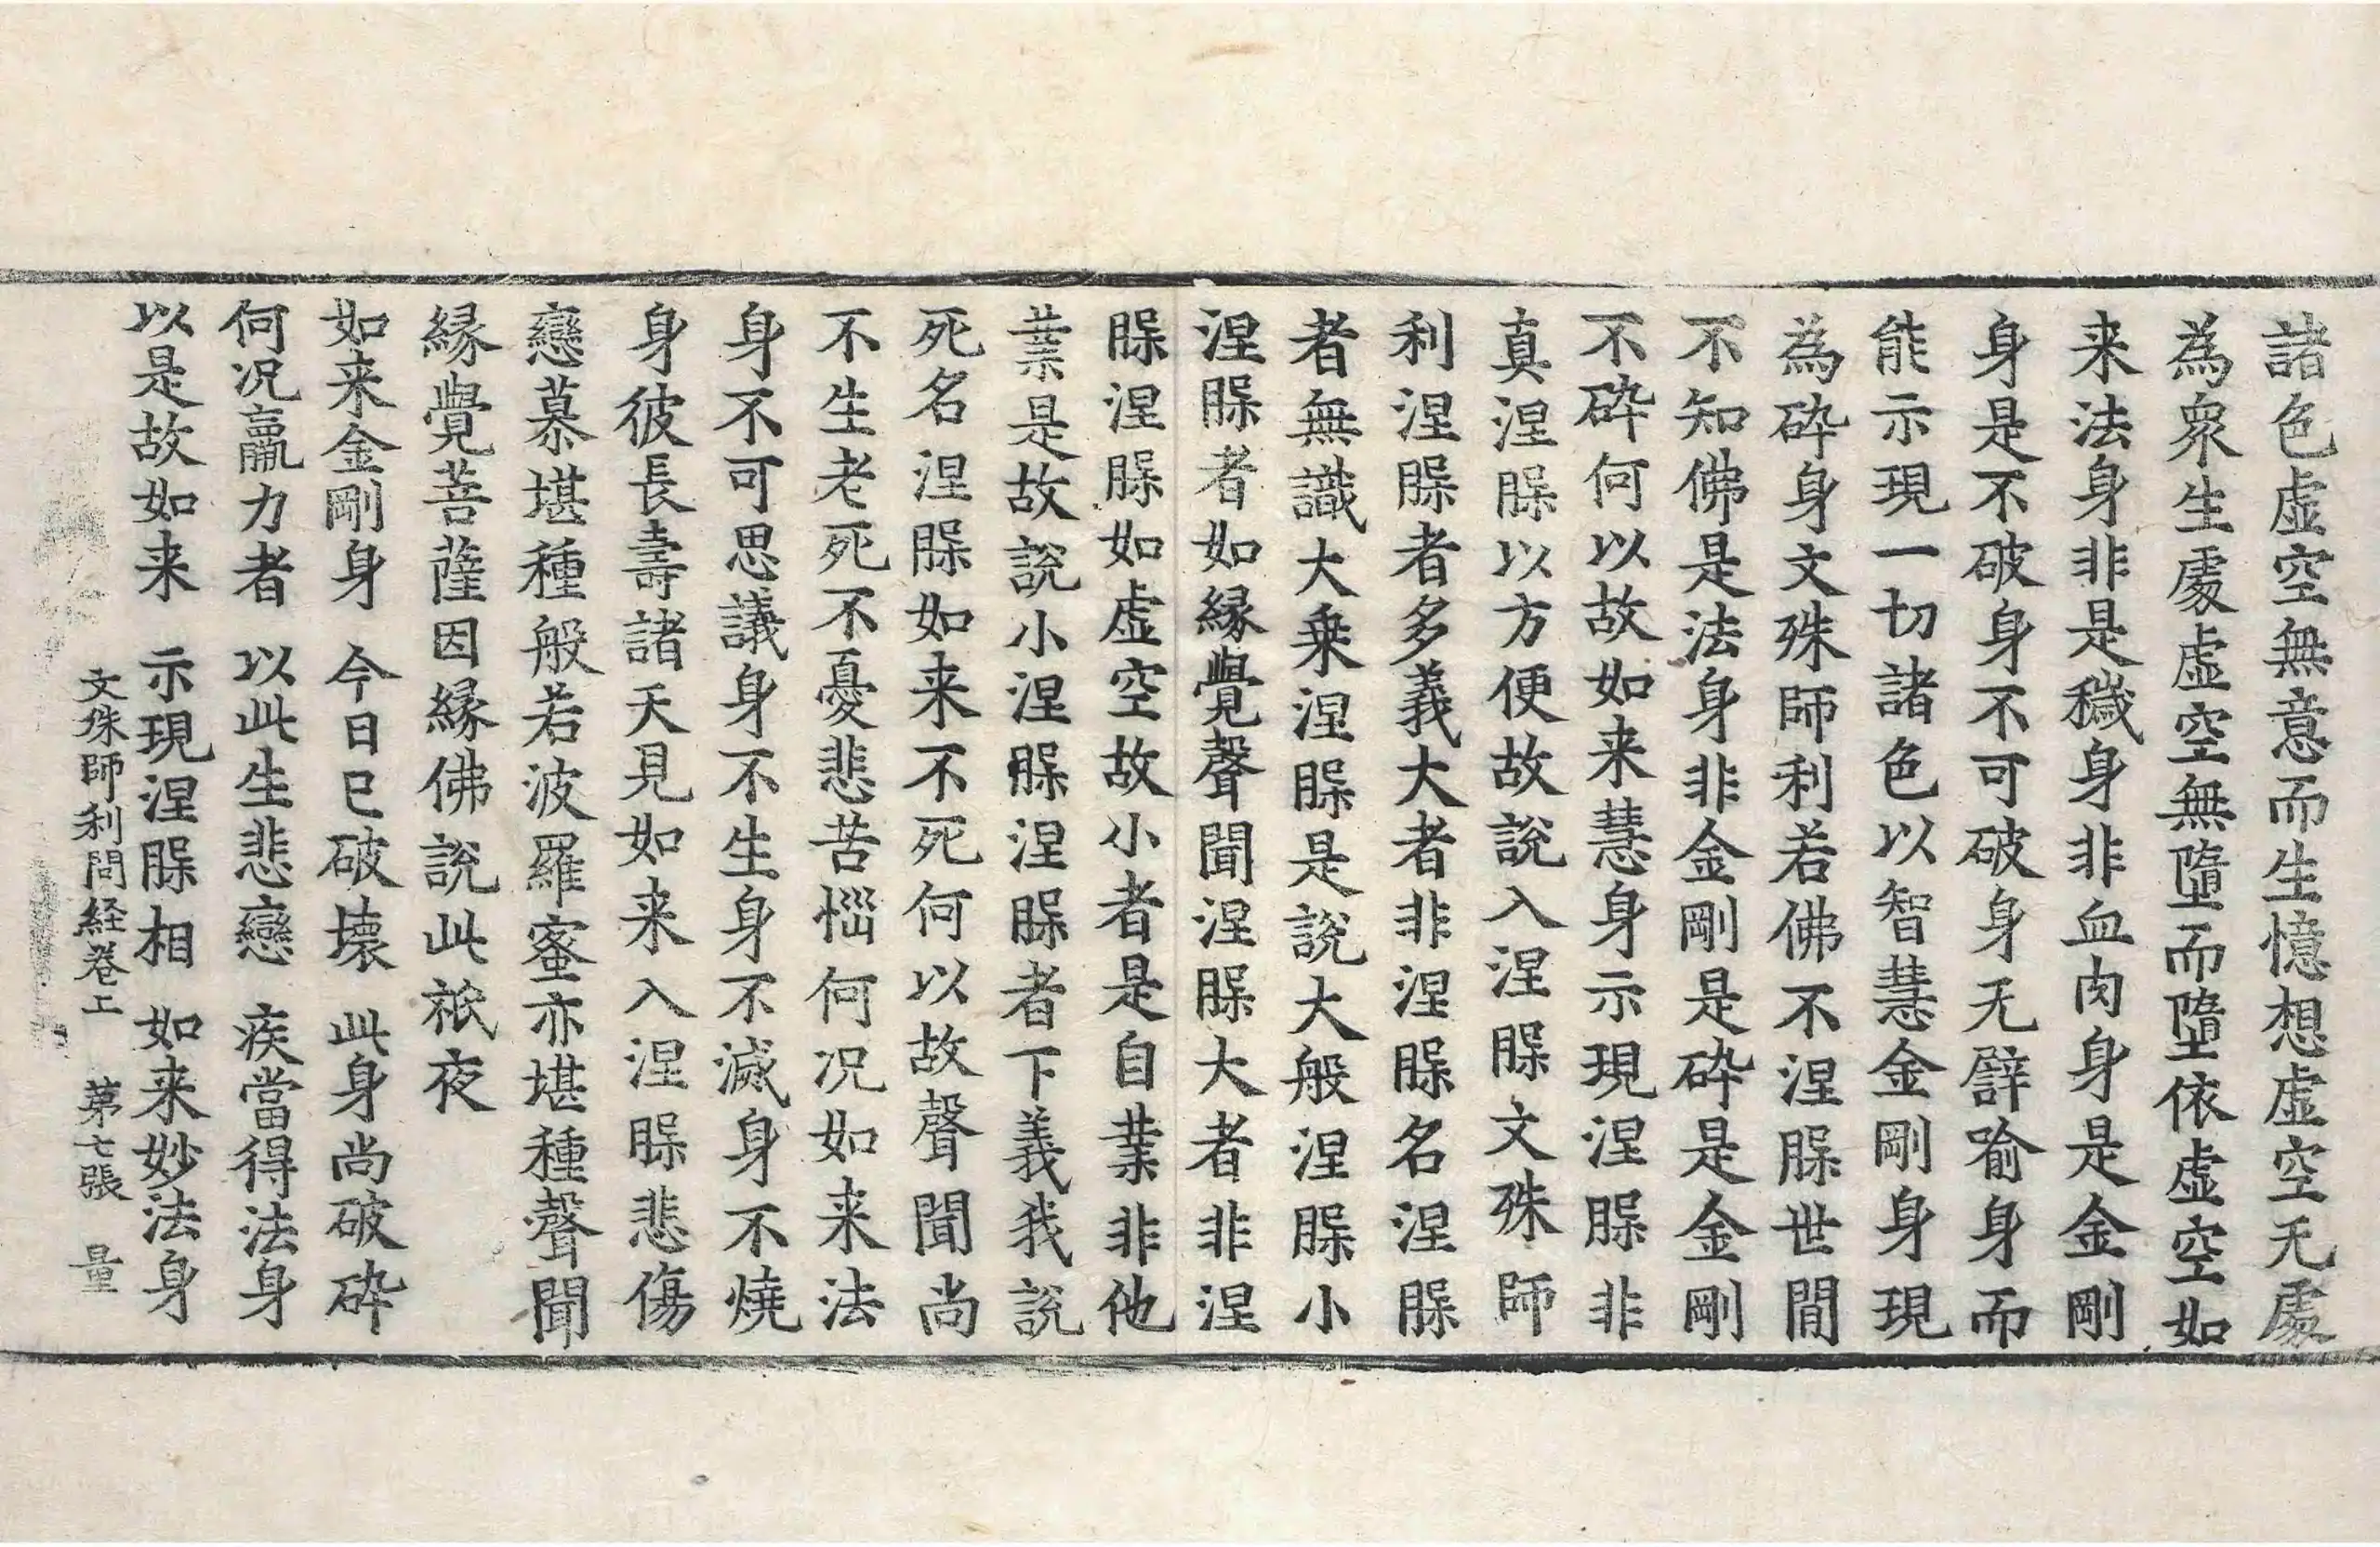 諸色虚空無意而生憶想虚空无處
為衆生處虚空無墮而墮依虚空如
来法身非是穢身非血肉身是金剛
身是不破身不可破身无譬喻身而
能示現一切諸色以智慧金剛身現
為碎身文殊師利若佛不涅槃世間
不知佛是法身非金剛是碎是金剛
不碎何以故如来慧身示現涅槃非
真涅槃以方便故說入涅槃文殊師
利涅槃者多義大者非涅槃名涅槃
者無識大乗涅槃是說大般涅槃小
涅槃者如縁覺聲聞涅槃大者非涅
槃涅槃如虚空故小者是自業非他
業是故說小涅槃涅槃者下義我說
死名涅槃如来不死何以故聲聞尚
不生老死不憂悲苦惱何况如来法
身不可思議身不生身不滅身不燒
身彼長壽諸天見如来入涅槃悲傷
戀慕堪種般若波羅蜜亦堪種聲聞
縁覺菩薩因縁佛說此祇夜
如来金剛身　今日已破壞　此身尚破碎
何况羸力者　以此生悲戀　疾當得法身
以是故如来　示現涅槃相　如来妙法身
文殊師利問経卷上　第七張　量